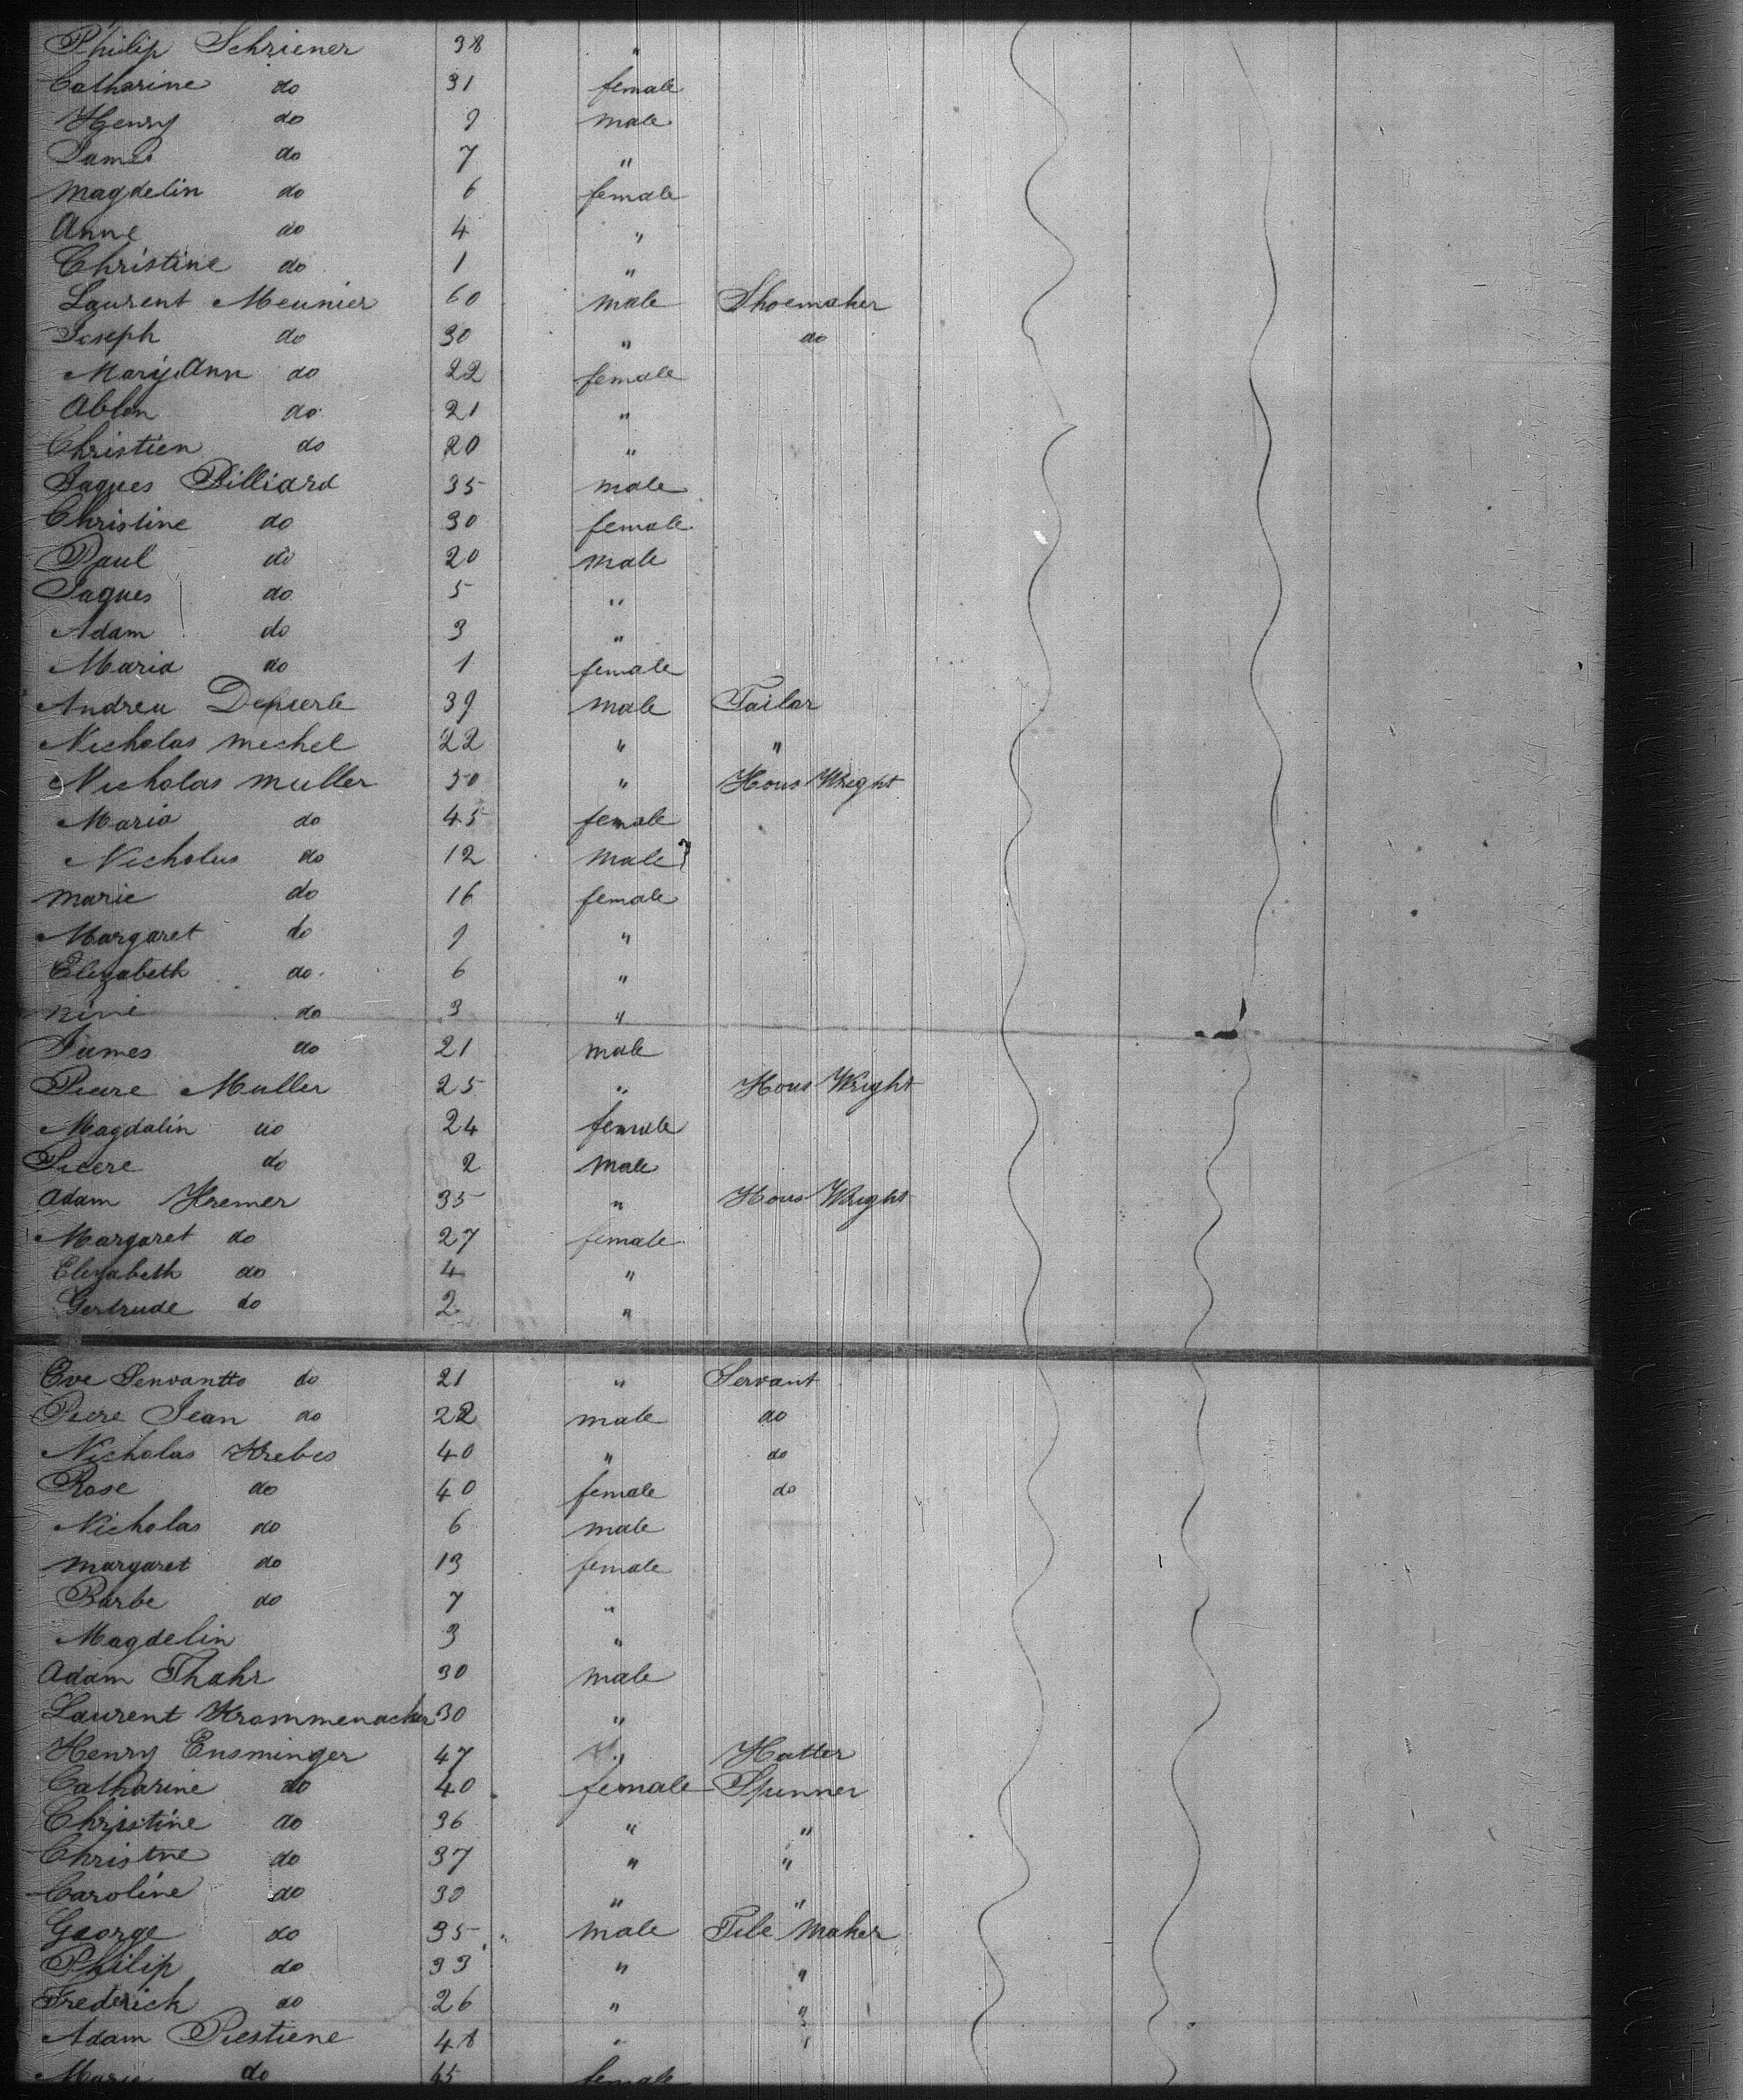 Philip Schriener 38 "
Catharine do 31 female
Henry do 9 male
James do 7 "
Magdelin do 6 female
Anne do 4 "
Christine do 1 "
Laurent Meunier 60 male Shoemaker
Joseph do 30 " do
Mary Ann do 22 female
do 21 "
Christien do 20 "
Jaques Billiard 35 male
Christine do 30 female
Paul do 20 male
Jaques do 5 "
Adam do 3 "
Maria do 1 female
Andreu 39 male Tailor
Nicholas Mechel 22 " "
Nicholas Muller 50 " Hous Wright
Maria do 45 female
Nicholus do 12 male
Marie do 16 female
Margaret do 9 "
Elizabeth do 6 "
nini do 3 "
James do 21 male
Pierre Muller 25 " Hous Wright
Magdalin do 24 female
Piere do 2 male
Adam Kremer 35 " Hous Wright
Margaret do 27 female
Elizabeth do 4 "
Gertrude do 2 "
Eve do 21 " Servant
Piere Jean do 22 male do
Nicholas Krebes 40 " do
Rose do 40 female do
Nicholas do 6 male
Margaret do 13 female
Barbe do 7 "
Magdelin 3 "
Adam Thahr 30 male
Laurent Krommenacker 30 "
Henry Ensminger 47 " Hatter
Catharine do 40 female Spinner
Christine do 36 " "
Christne do 37 " "
Caroline do 30 " "
George do 35 male Tile Maker
Philip do 33 " "
Frederick do 26 " "
Adam Piestiene 48 " "
Marie do 45 female